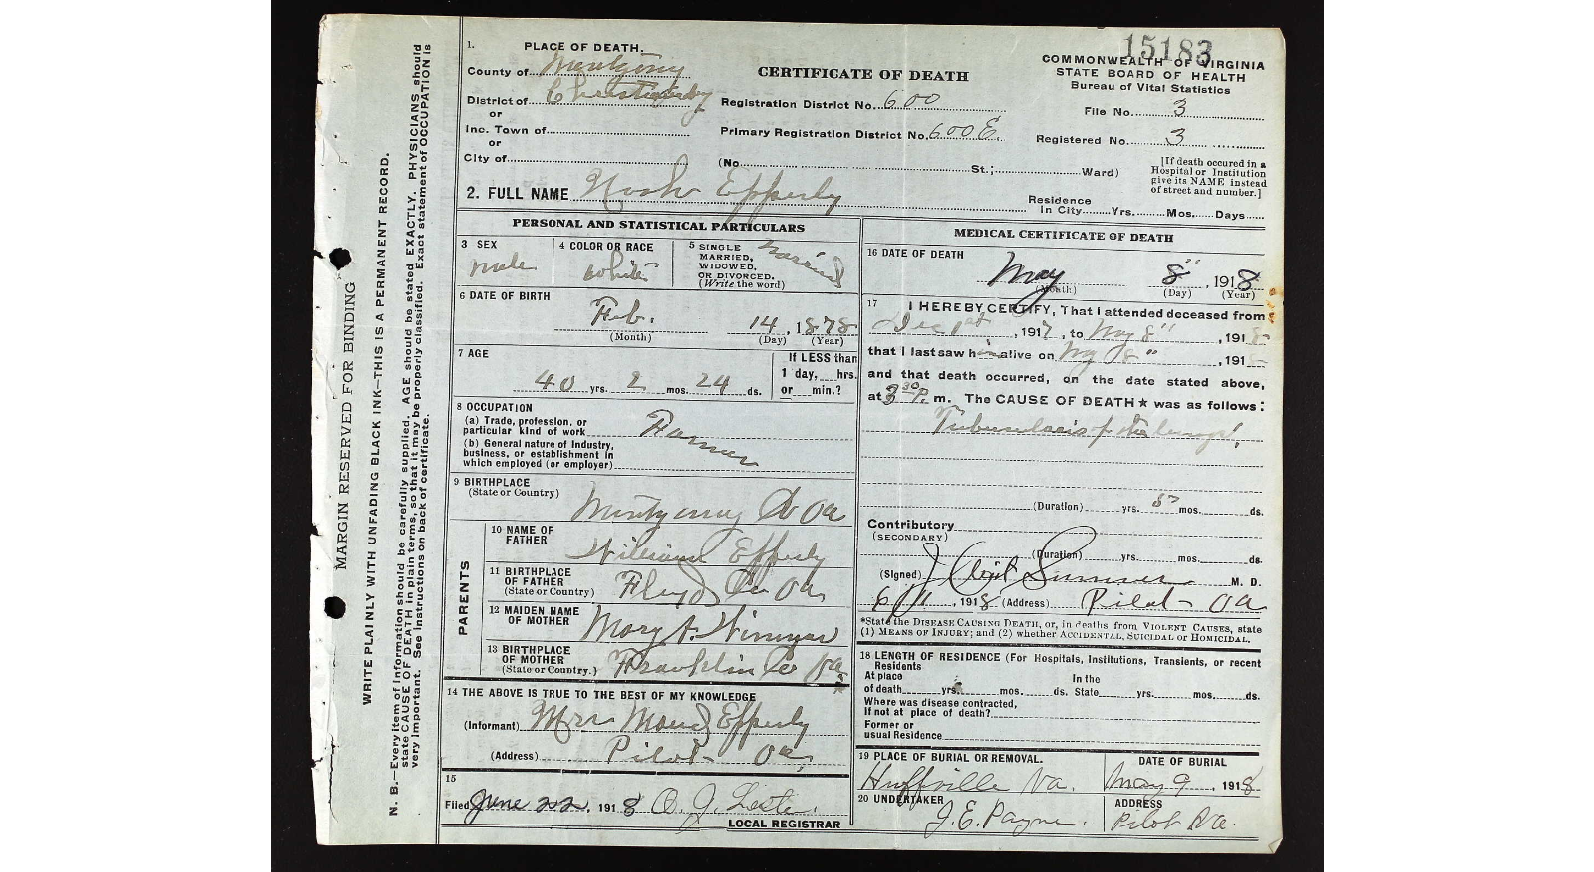 15183
1. PLACE OF DEATH.
County of Montgomery
District of Christiansburg
or
Inc. Town of
or
City of
CERTIFICATE OF DEATH
Registration District No. 600
Primary Registration District No. 600 E.
(No. St.; Ward)
COMMONWEALTH OF VIRGINIA
STATE BOARD OF HEALTH
Bureau of Vital Statistics
File No. 3
Registered No. 3
[If death occured in a
Hospital or Institution
give its NAME instead
of street and number.]
2. FULL NAME Noah Epperly
Residence
In City Yrs. Mos. Days
PERSONAL AND STATISTICAL PARTICULARS
3 SEX
male
4 COLOR OR RACE
white
5 SINGLE
MARRIED,
WIDOWED,
OR DIVORCED.
(Write the word)
married
6 DATE OF BIRTH
Feb. 14, 1878
(Month) (Day) (Year)
7 AGE
40 yrs. 2 mos. 24 ds.
If LESS than
1 day, hrs.
or min.?
8 OCCUPATION
(a) Trade, profession, or
particular kind of work Farmer
(b) General nature of Industry,
business, or establishment in
which employed (or employer)
9 BIRTHPLACE
(State or Country)
Montgomery Co Va
PARENTS
10 NAME OF
FATHER
William Epperly
11 BIRTHPLACE
OF FATHER
(State or Country)
Floyd Co Va
12 MAIDEN NAME
OF MOTHER
Mary A.
13 BIRTHPLACE
OF MOTHER
(State or Country.)
Franklin Co Va
14 THE ABOVE IS TRUE TO THE BEST OF MY KNOWLEDGE
(Informant) Mrs Maud Epperly
(Address) Pilot Va,
15
Filed June 22, 1918 O. J. Lester.
LOCAL REGISTRAR
MEDICAL CERTIFICATE OF DEATH
16 DATE OF DEATH
May 8", 1918
(Month) (Day) (Year)
17 I HEREBY CERTIFY, That I attended deceased from
Dec 1st, 1917, to May 8", 1918
that I last saw him alive on May 8", 1918
and that death occurred, on the date stated above,
at 3 30 P. m. The CAUSE OF DEATH★ was as follows:
Tuberculosis of the lungs,
(Duration) yrs. mos. ds.
Contributory
(SECONDARY)
(Duration) yrs. mos. ds.
(Signed) M. D.
6/11, 1918 (Address) Pilot Va
*State the DISEASE CAUSING DEATH, or, in deaths from VIOLENT CAUSES, state
(1) MEANS OF INJURY; and (2) whether ACCIDENTAL, SUICIDAL or HOMICIDAL.
18 LENGTH OF RESIDENCE (For Hospitals, Institutions, Transients, or recent
Residents
At place In the
of death yrs. mos. ds. State yrs. mos. ds.
Where was disease contracted,
If not at place of death?
Former or
usual Residence
19 PLACE OF BURIAL OR REMOVAL.
Huffville Va.
DATE OF BURIAL
May 9, 1918
20 UNDERTAKER
J. E. Payne.
ADDRESS
Pilot Va.
MARGIN RESERVED FOR BINDING
WRITE PLAINLY WITH UNFADING BLACK INK—THIS IS A PERMANENT RECORD.
N. B.—Every item of Information should be carefully supplied. AGE should be stated EXACTLY. PHYSICIANS should
state CAUSE OF DEATH in plain terms, so that it may be properly classified. Exact statement of OCCUPATION is
very important. See instructions on back of certificate.